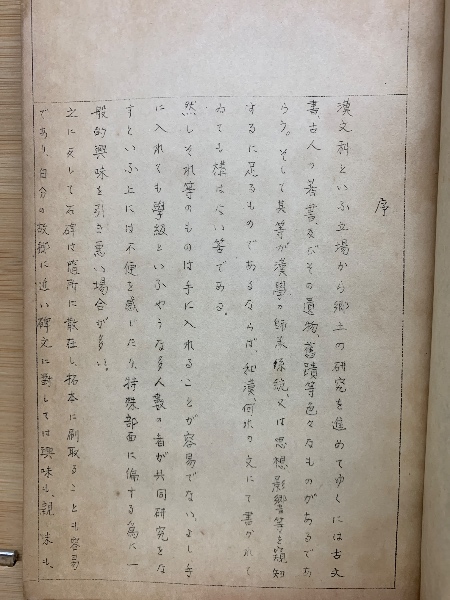 序
漢文科といふ立場から郷土の研究を進めてゆくには古文
書古人の著書及びその遺物、舊蹟等色々なものがあるであ
らう。そして其等が漢學の師承系統、又は思想影響等を窺知
するに足るものであるならば、和漢何れの文にて書かれて
ゐても構はない筈である。
然しそれ等のものは手に入れることが容易でない、よし手
に入れても學級といふやうな多人數の者が共同研究をな
すといふ上には不便を感じたり、特殊部面に偏する為に一
般的興味を引き悪い場合が多い。
之に反して石碑は随所に散在し、拓本に刷取ることも容易
であり、自分の故郷に近い碑文に對しては興味も、親味も、